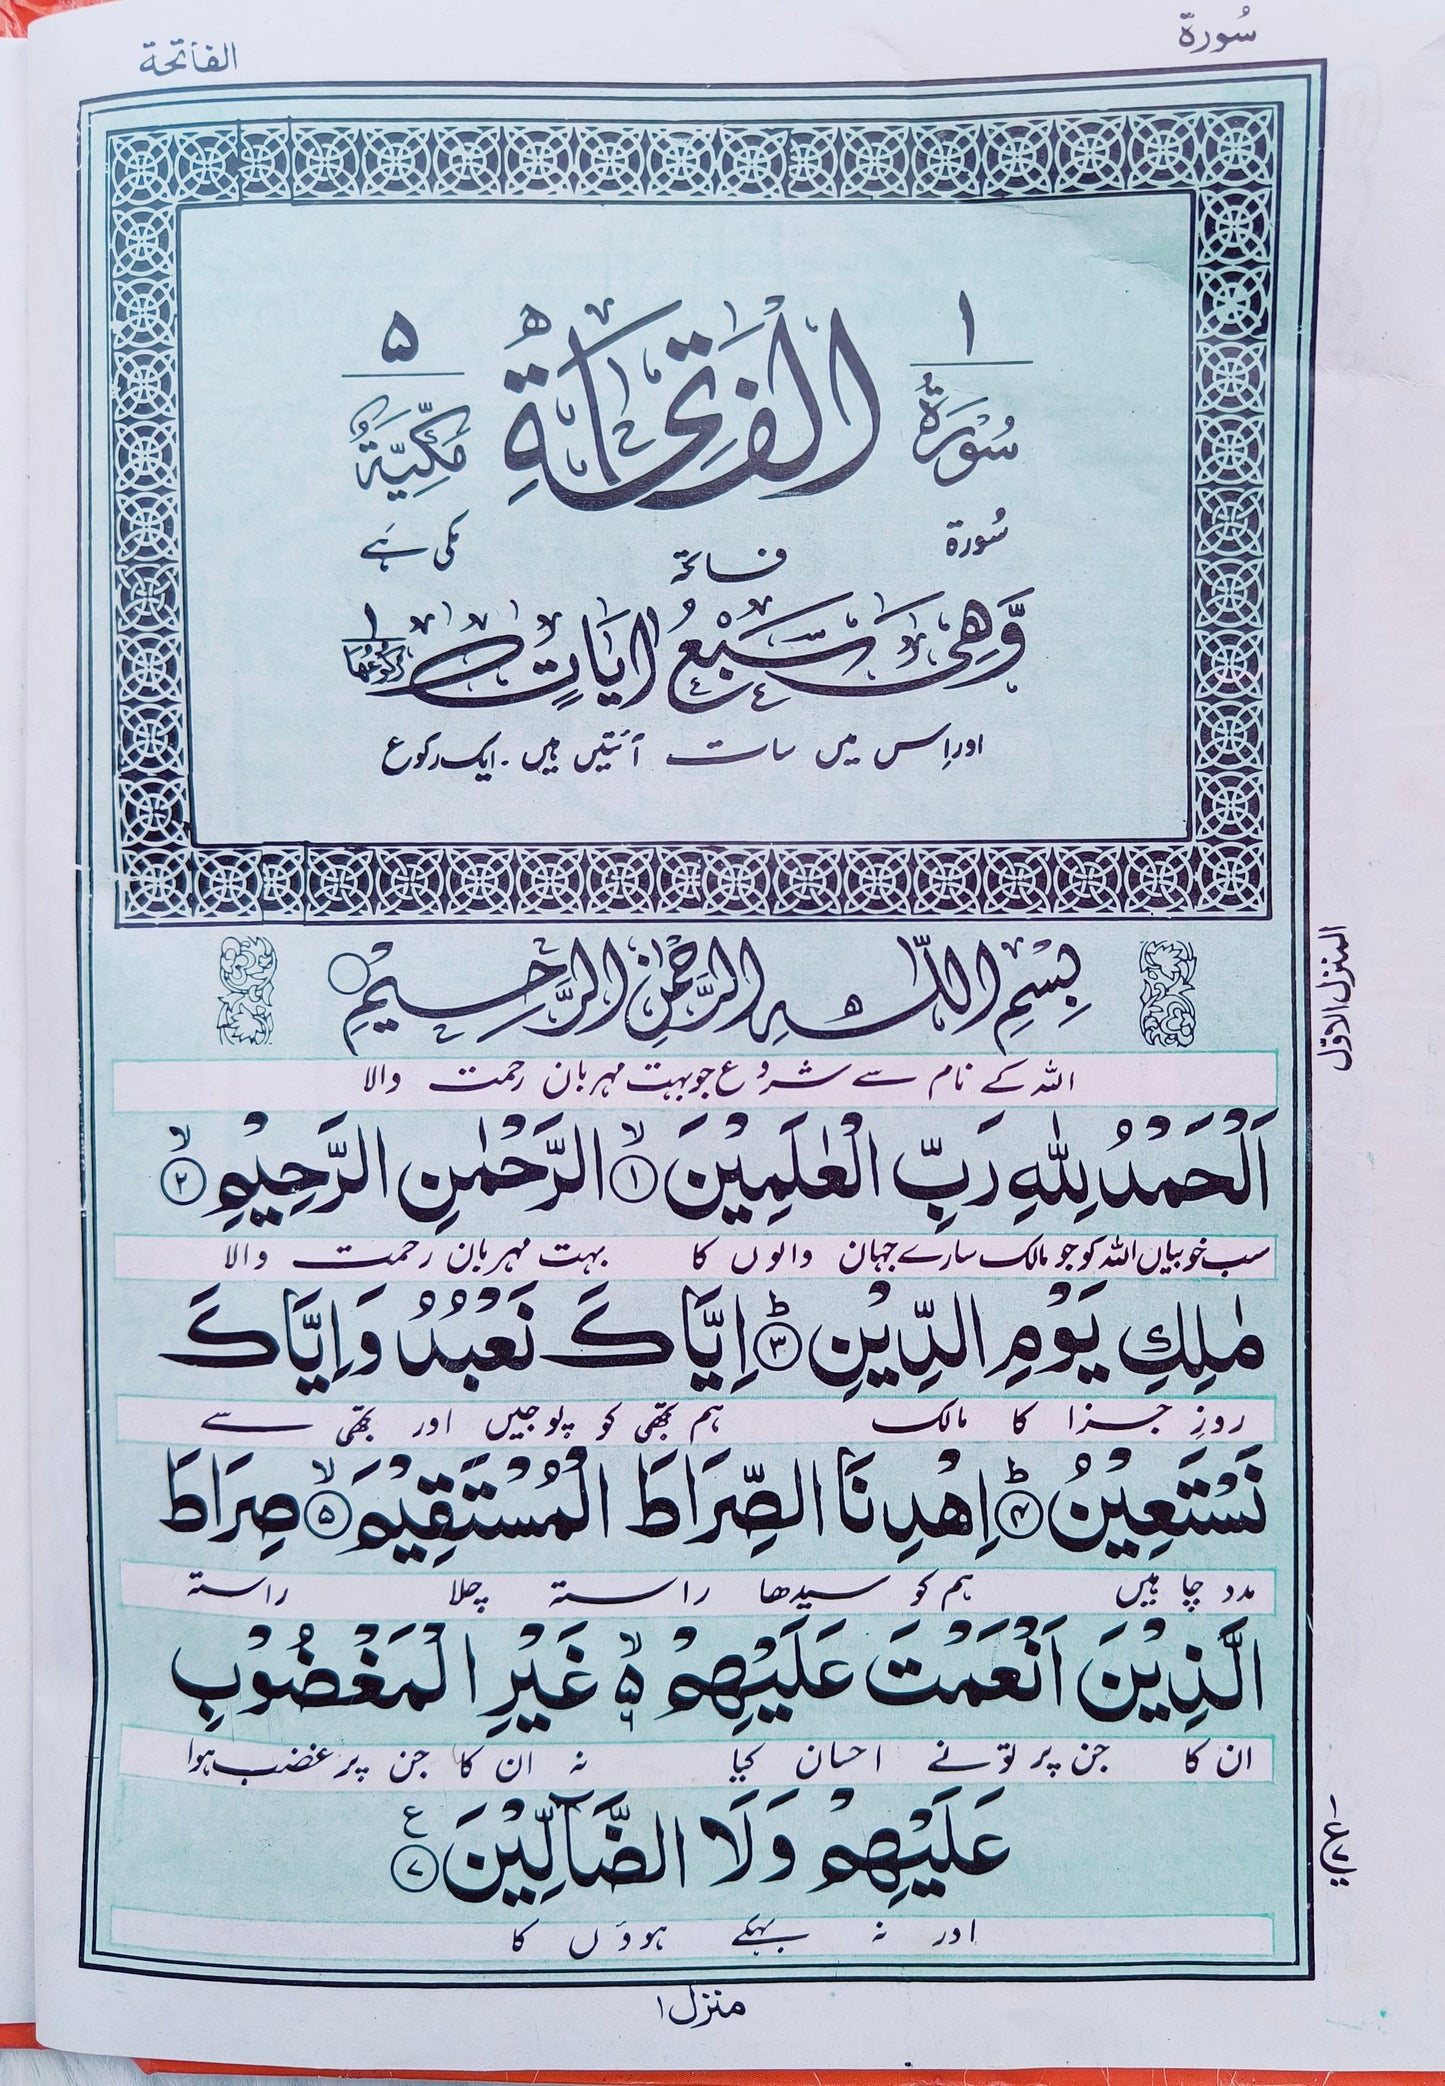 سُورة
الفاتحة
١ ٥
سُوْرَةُ الْفَاتِحَةِ مَكِّيَّةٌ
سُورة فاتحہ مکی ہے
وَّهِىَ سَبْعُ اٰيَاتٍ ١ رُكُوْعُهَا
اور اِس میں سات آئتیں ہیں۔ ایک رکوع
بِسْمِ اللّٰهِ الرَّحْمٰنِ الرَّحِيْمِ
اللہ کے نام سے شروع جو بہت مہربان رحمت والا
اَلْحَمْدُ لِلّٰهِ رَبِّ الْعٰلَمِيْنَ ۙ﴿١﴾ الرَّحْمٰنِ الرَّحِيْمِ ۙ﴿٢﴾
سب خوبیاں اللہ کو جو مالک سارے جہان والوں کا بہت مہربان رحمت والا
مٰلِكِ يَوْمِ الدِّيْنِ ؕ﴿٣﴾ اِيَّاكَ نَعْبُدُ وَاِيَّاكَ
روزِ جزا کا مالک ہم تجھی کو پوجیں اور تجھی سے
نَسْتَعِيْنُ ؕ﴿۴﴾ اِهْدِنَا الصِّرَاطَ الْمُسْتَقِيْمَ ۙ﴿۵﴾ صِرَاطَ
مدد چاہیں ہم کو سیدھا راستہ چلا راستہ
الَّذِيْنَ اَنْعَمْتَ عَلَيْهِمْ ۙ۵ ۶ غَيْرِ الْمَغْضُوْبِ
ان کا جن پر تو نے احسان کیا نہ ان کا جن پر غضب ہوا
عَلَيْهِمْ وَلَا الضَّآلِّيْنَ ﴿٧﴾ ع
اور نہ بہکے ہوؤں کا
المنزل الاوّل
١ ع ٧
منزل ١